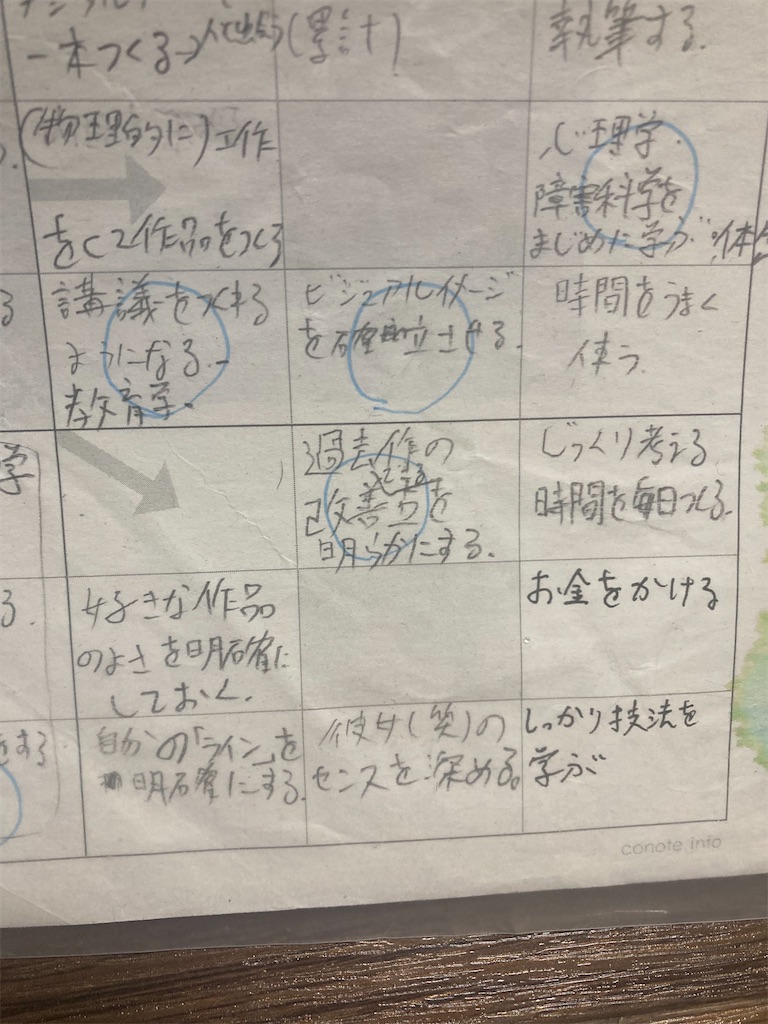 一本つくる→ (累計)
執筆する。
(物理的に)工作
をして作品をつくる
心理学・
障害科学を
まじめに学ぶ
講義をつくれる
ようになる。
教育学。
ビジュアルイメージ
を確立させる。
時間をうまく
使う
学
過去作の
改善点を
明らかにする。
じっくり考える
時間を毎日つくる。
る。
好きな作品
のよさを明確に
しておく。
お金をかける
をする
自分の「ライン」を
明確にする。
彼女(笑)の
センスを深める。
しっかり技法を
学ぶ
conote.info